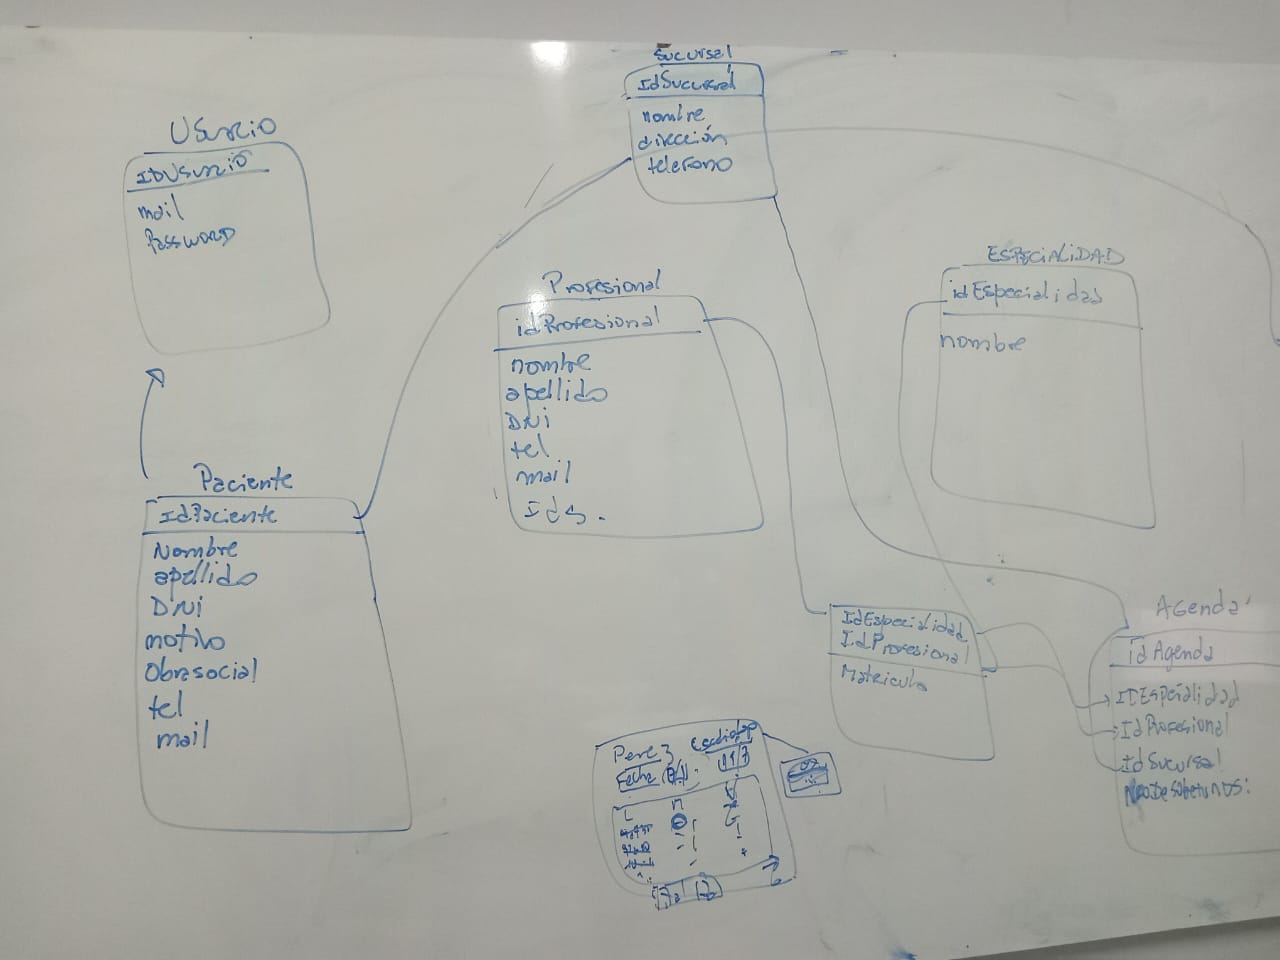 Sucursal
IdSucursal
nombre
dirección
telefono
Usuario
IDUsuario
mail
Password
Profesional
idProfesional
nombre
apellido
DNi
tel
mail
ESPECIALIDAD
idEspecialidad
nombre
Paciente
IdPaciente
Nombre
apellido
DNi
motivo
Obrasocial
tel
mail
IdEspecialidad
IdProfesional
Matricula
Agenda
idAgenda
IDEspecialidad
IdProfesional
IdSucursal
Perez
Fecha